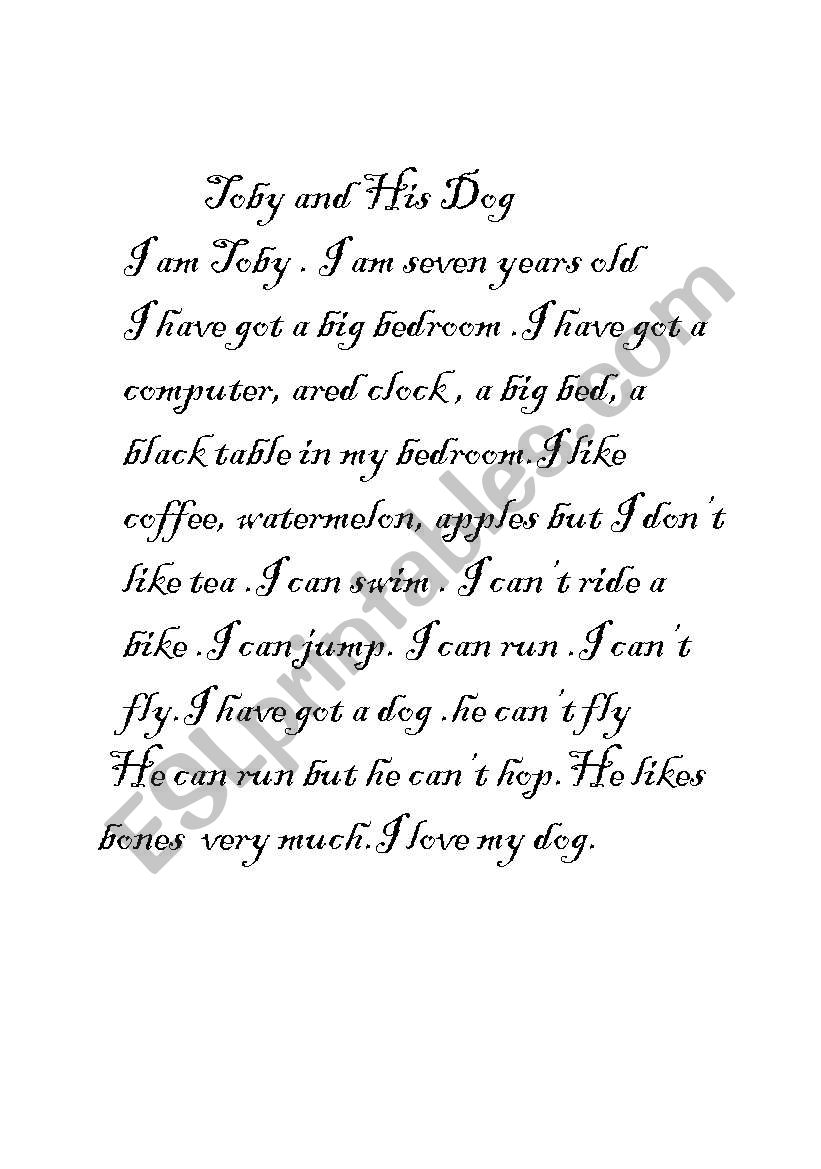 Toby and His Dog
I am Toby . I am seven years old
I have got a big bedroom .I have got a
computer, ared clock , a big bed, a
black table in my bedroom.I like
coffee, watermelon, apples but I don't
like tea .I can swim . I can't ride a
bike .I can jump. I can run .I can't
fly.I have got a dog .he can't fly
He can run but he can't hop.He likes
bones very much.I love my dog.
ESLprintables.com